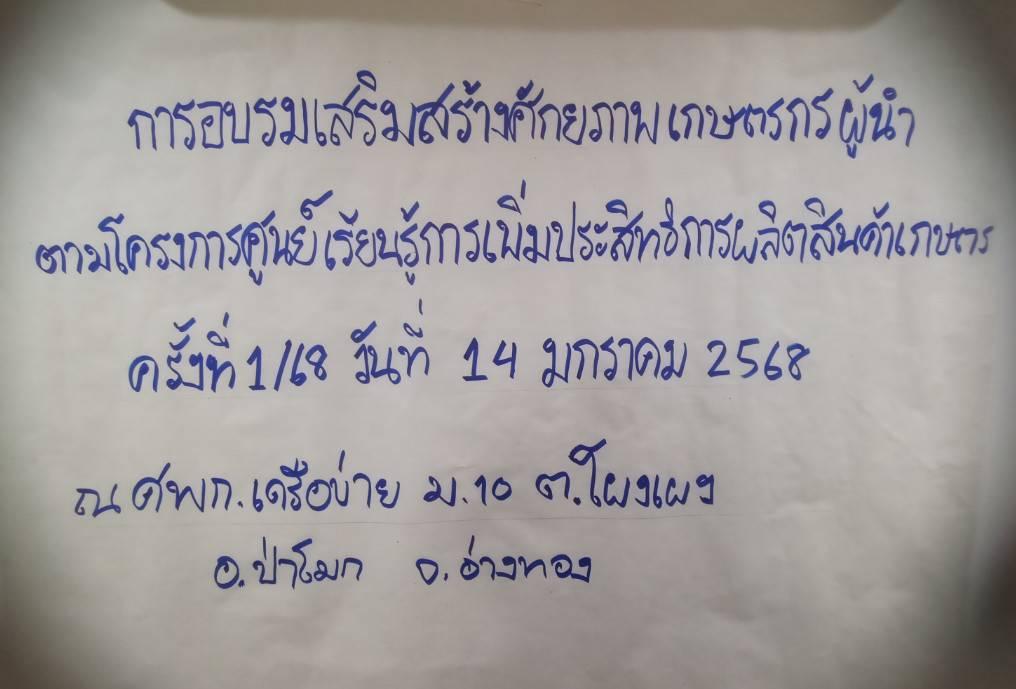 การอบรมเสริมสร้างศักยภาพเกษตรกรผู้นำ
ตามโครงการศูนย์เรียนรู้การเพิ่มประสิทธิการผลิตสินค้าเกษตร
ครั้งที่ 1/68 วันที่ 14 มกราคม 2568
ณ ศพก.เครือข่าย ม.10 ต.โผงเผง
อ.ป่าโมก จ.อ่างทอง